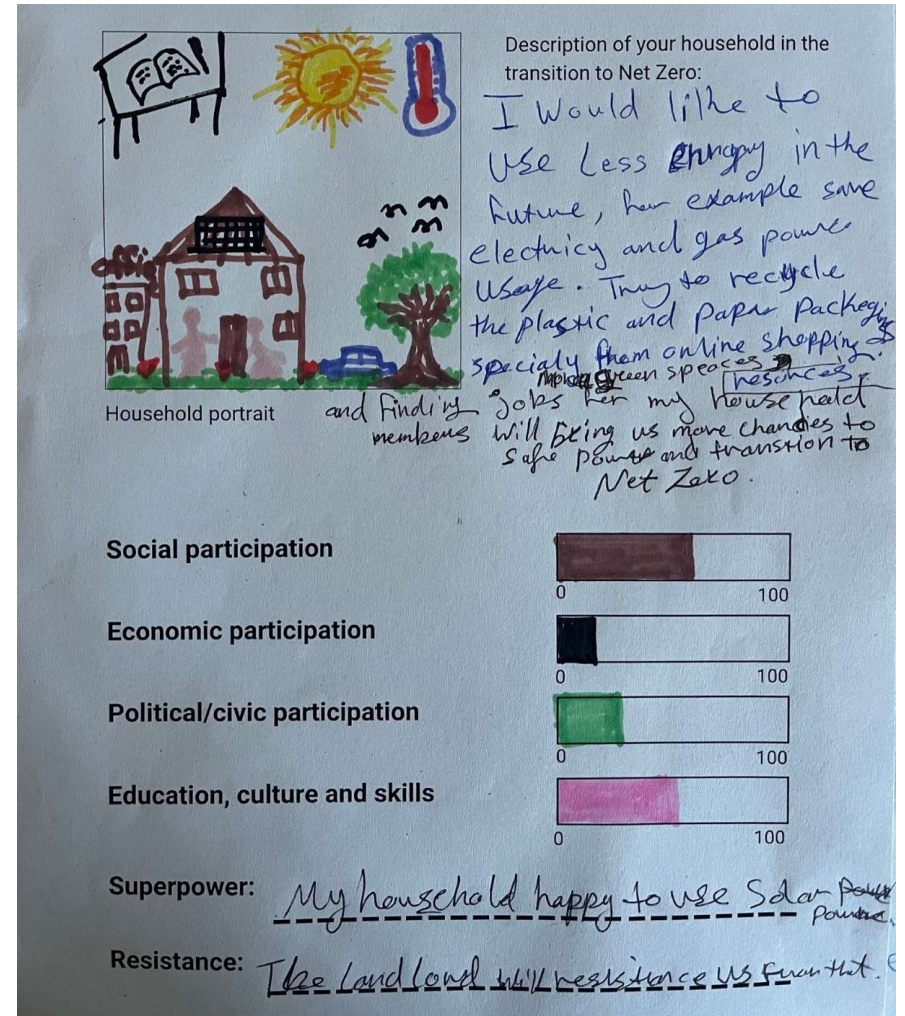 Description of your household in the
transition to Net Zero:
I Would like to
Use Less in the
future, for example save
electricy and gas power
Usage. Try to recycle
the plastic and Papar Packeging
specialy from online shopping &
green speaces
resources.
and Finding jobs for my household
members Will bring us more chandes to
safe power and transtion to
Net Zero.
office
Household portrait
Social participation
0 100
Economic participation
0 100
Political/civic participation
0 100
Education, culture and skills
0 100
Superpower: My household happy to use Solar
Power.
Resistance: The Landlord will resistance us from that.